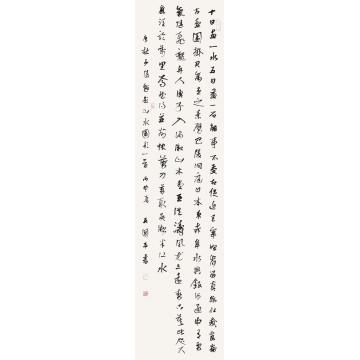 十日畫一水五日畫一石能事不受相促迫王宰始肯留真跡壯哉崑崙
方壺圖掛君高堂之素壁巴陵洞庭日本東赤岸水與銀河通中有雲
氣隨飛龍舟人漁子入浦溆山木盡亞洪濤風尤工遠勢古莫比咫尺
應須論萬里焉得并州快剪刀剪取吳淞半江水
山水圖歌一首